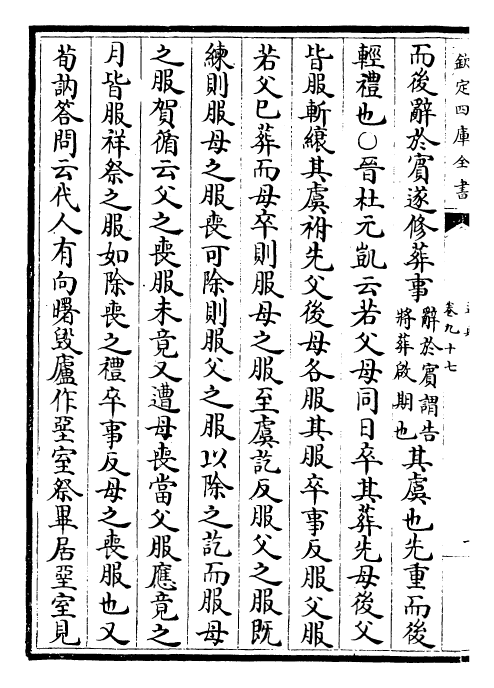 欽定四庫全書
卷九十七
而後辭於賓遂修葬事辭於賓謂告將葬啟期也其虞也先重而後
輕禮也○晉杜元凱云若父母同日卒其葬先母後父
皆服斬縗其虞祔先父後母各服其服卒事反服父服
若父已葬而母卒則服母之服至虞訖反服父之服既
練則服母之服喪可除則服父之服以除之訖而服母
之服賀循云父之喪服未竟又遭母喪當父服應竟之
月皆服祥祭之服如除喪之禮卒事反母之喪服也又
荀訥答問云代人有向曙毀廬作堊室祭畢居堊室見